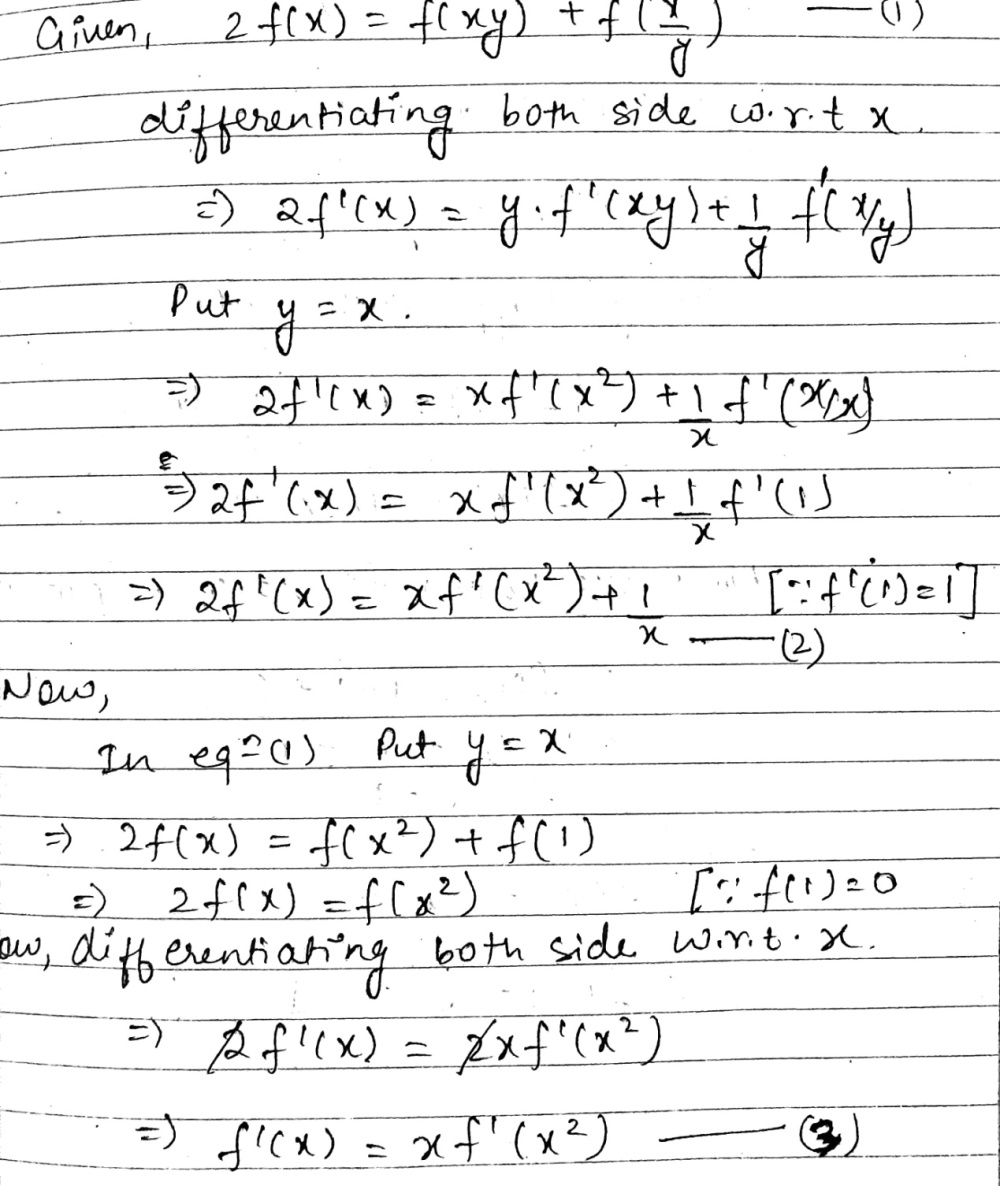 Given, 2f(x) = f(xy) + f(x/y) —(1)
differentiating both side w.r.t x.
=) 2f'(x) = y.f'(xy) + 1/y f'(x/y)
Put y = x.
=) 2f'(x) = xf'(x²) + 1/x f'(x/x)
=) 2f'(x) = xf'(x²) + 1/x f'(1)
=) 2f'(x) = xf'(x²) + 1/x [∵ f'(1)=1] —(2)
Now,
In eqn (1) Put y = x
=) 2f(x) = f(x²) + f(1)
=) 2f(x) = f(x²) [∵ f(1)=0
ow, differentiating both side w.r.t. x.
=) 2f'(x) = 2xf'(x²)
=) f'(x) = xf'(x²) —(3)